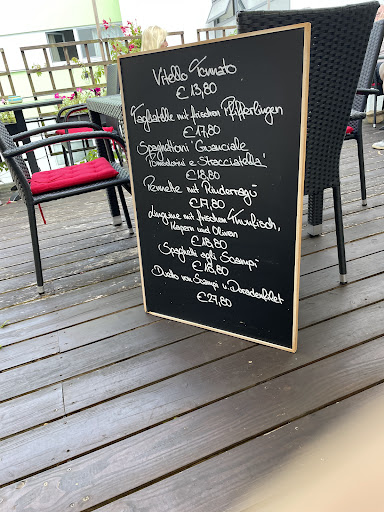 Vitello Tonnato
€ 13,80
Tagliatelle mit frischen Pfifferlingen
€ 17,80
Spaghettoni 'Guanciale
Pomodorini e Stracciatella'
€ 18,80
Pennette mit Rinderragù
€ 17,80
Linguine mit frischen Thunfisch,
Kapern und Oliven
€ 18,80
Spaghetti agli Scampi
€ 18,80
Duetto von Scampi u. Doradenfilet
€ 27,80